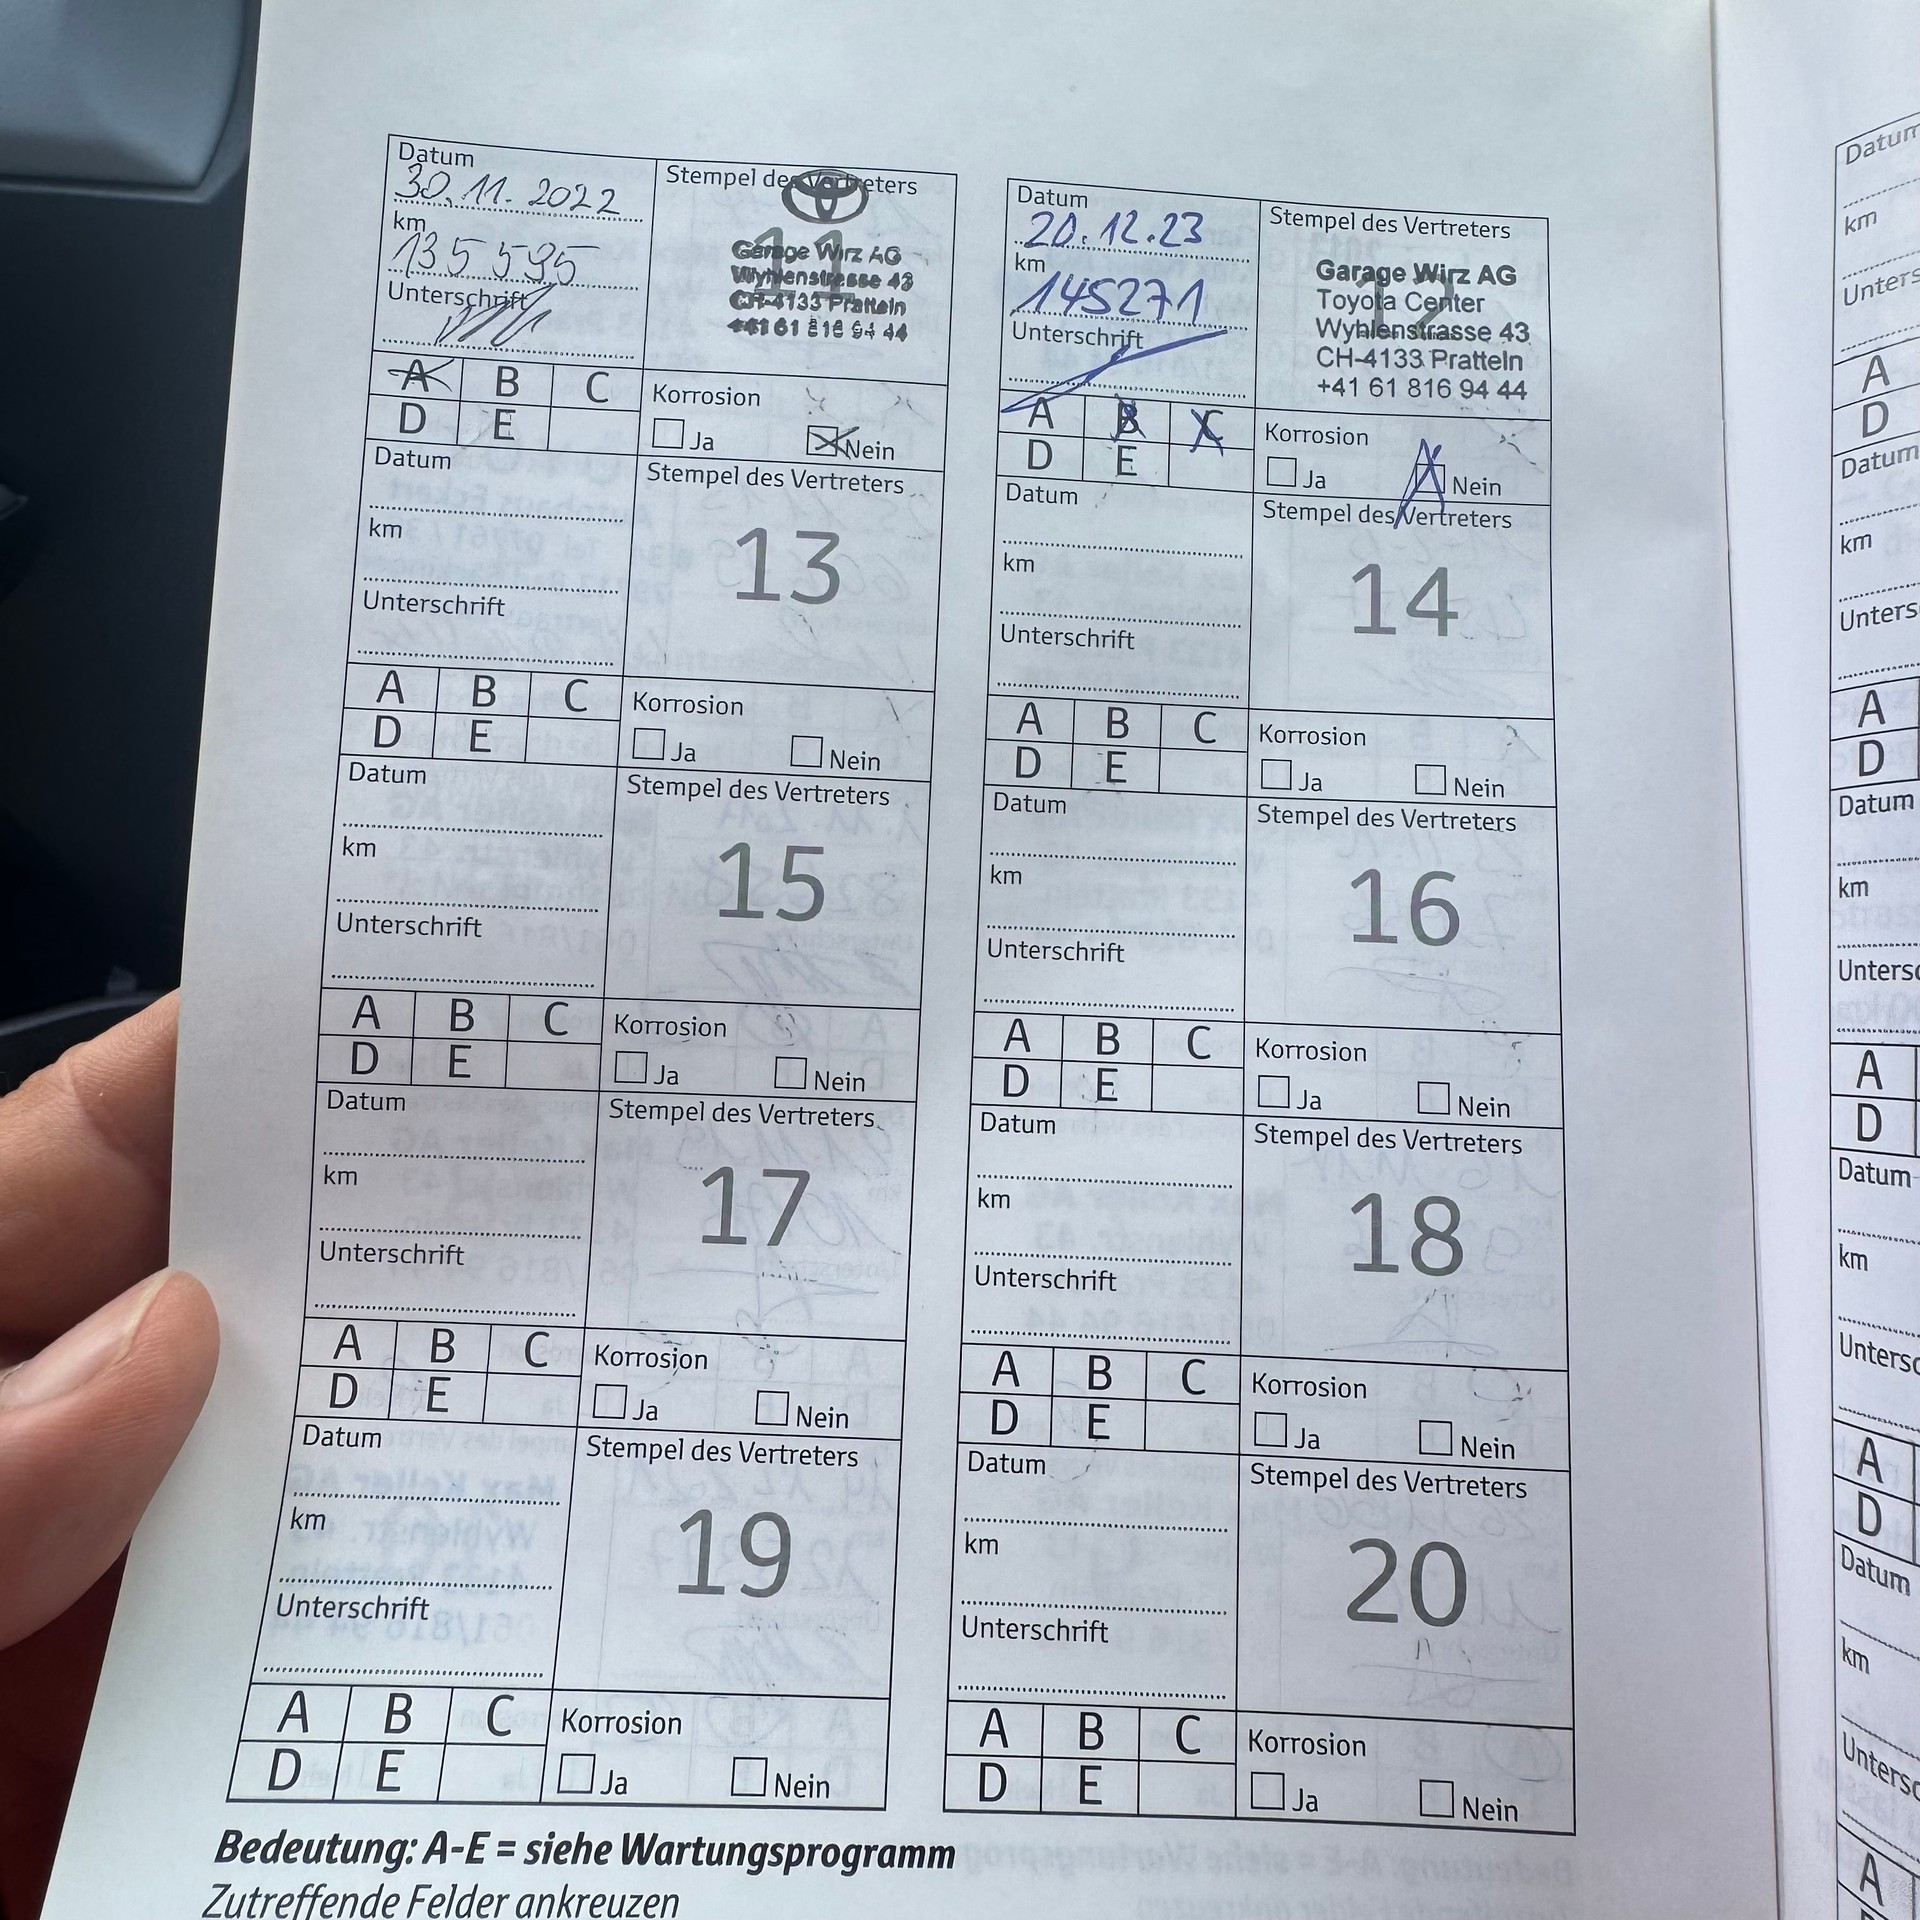 Datum
30.11.2022
km
135 595
Unterschrift
Stempel des Vertreters
11
Garage Wirz AG
Wyhlenstrasse 43
CH-4133 Pratteln
+41 61 816 94 44
A B C
D E
Korrosion
Ja Nein
Datum
20.12.23
km
145271
Unterschrift
Stempel des Vertreters
12
Garage Wirz AG
Toyota Center
Wyhlenstrasse 43
CH-4133 Pratteln
+41 61 816 94 44
A B C
D E
Korrosion
Ja Nein
Datum
km
Unterschrift
Stempel des Vertreters
13
A B C
D E
Korrosion
Ja Nein
Datum
km
Unterschrift
Stempel des Vertreters
14
A B C
D E
Korrosion
Ja Nein
Datum
km
Unterschrift
Stempel des Vertreters
15
A B C
D E
Korrosion
Ja Nein
Datum
km
Unterschrift
Stempel des Vertreters
16
A B C
D E
Korrosion
Ja Nein
Datum
km
Unterschrift
Stempel des Vertreters
17
A B C
D E
Korrosion
Ja Nein
Datum
km
Unterschrift
Stempel des Vertreters
18
A B C
D E
Korrosion
Ja Nein
Datum
km
Unterschrift
Stempel des Vertreters
19
A B C
D E
Korrosion
Ja Nein
Datum
km
Unterschrift
Stempel des Vertreters
20
A B C
D E
Korrosion
Ja Nein
Bedeutung: A-E = siehe Wartungsprogramm
Zutreffende Felder ankreuzen
Datum
km
Unters
A
D
Datum
km
Unters
A
D
Datum
km
Unters
A
D
Datum
km
Unters
A
D
Datum
km
Unters
A